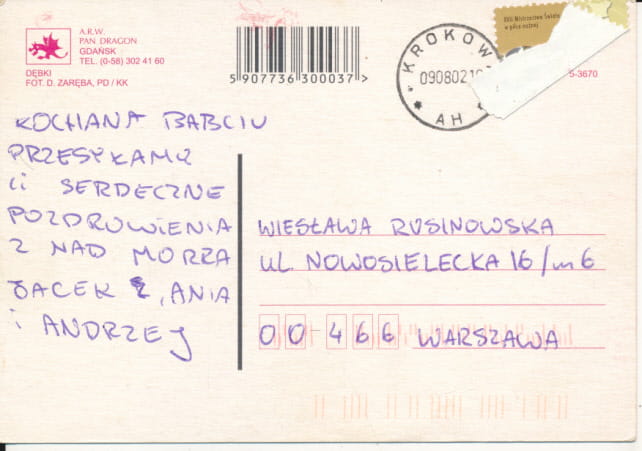 A.R.W.
PAN DRAGON
GDAŃSK
TEL. (0-58) 302 41 60
DĘBKI
FOT. D. ZARĘBA, PD / KK
5 907736 300037 >
XVII Mistrzostwa Świata
w piłce nożnej
KROKOW
090802
AH
5-3670
KOCHANA BABCIU
PRZESYŁAMY
Ci SERDECZNE
POZDROWIENIA
Z NAD MORZA
JACEK, ANIA
i ANDRZEJ
WIESŁAWA RUSINOWSKA
UL. NOWOSIELECKA 16/m6
00-466 WARSZAWA